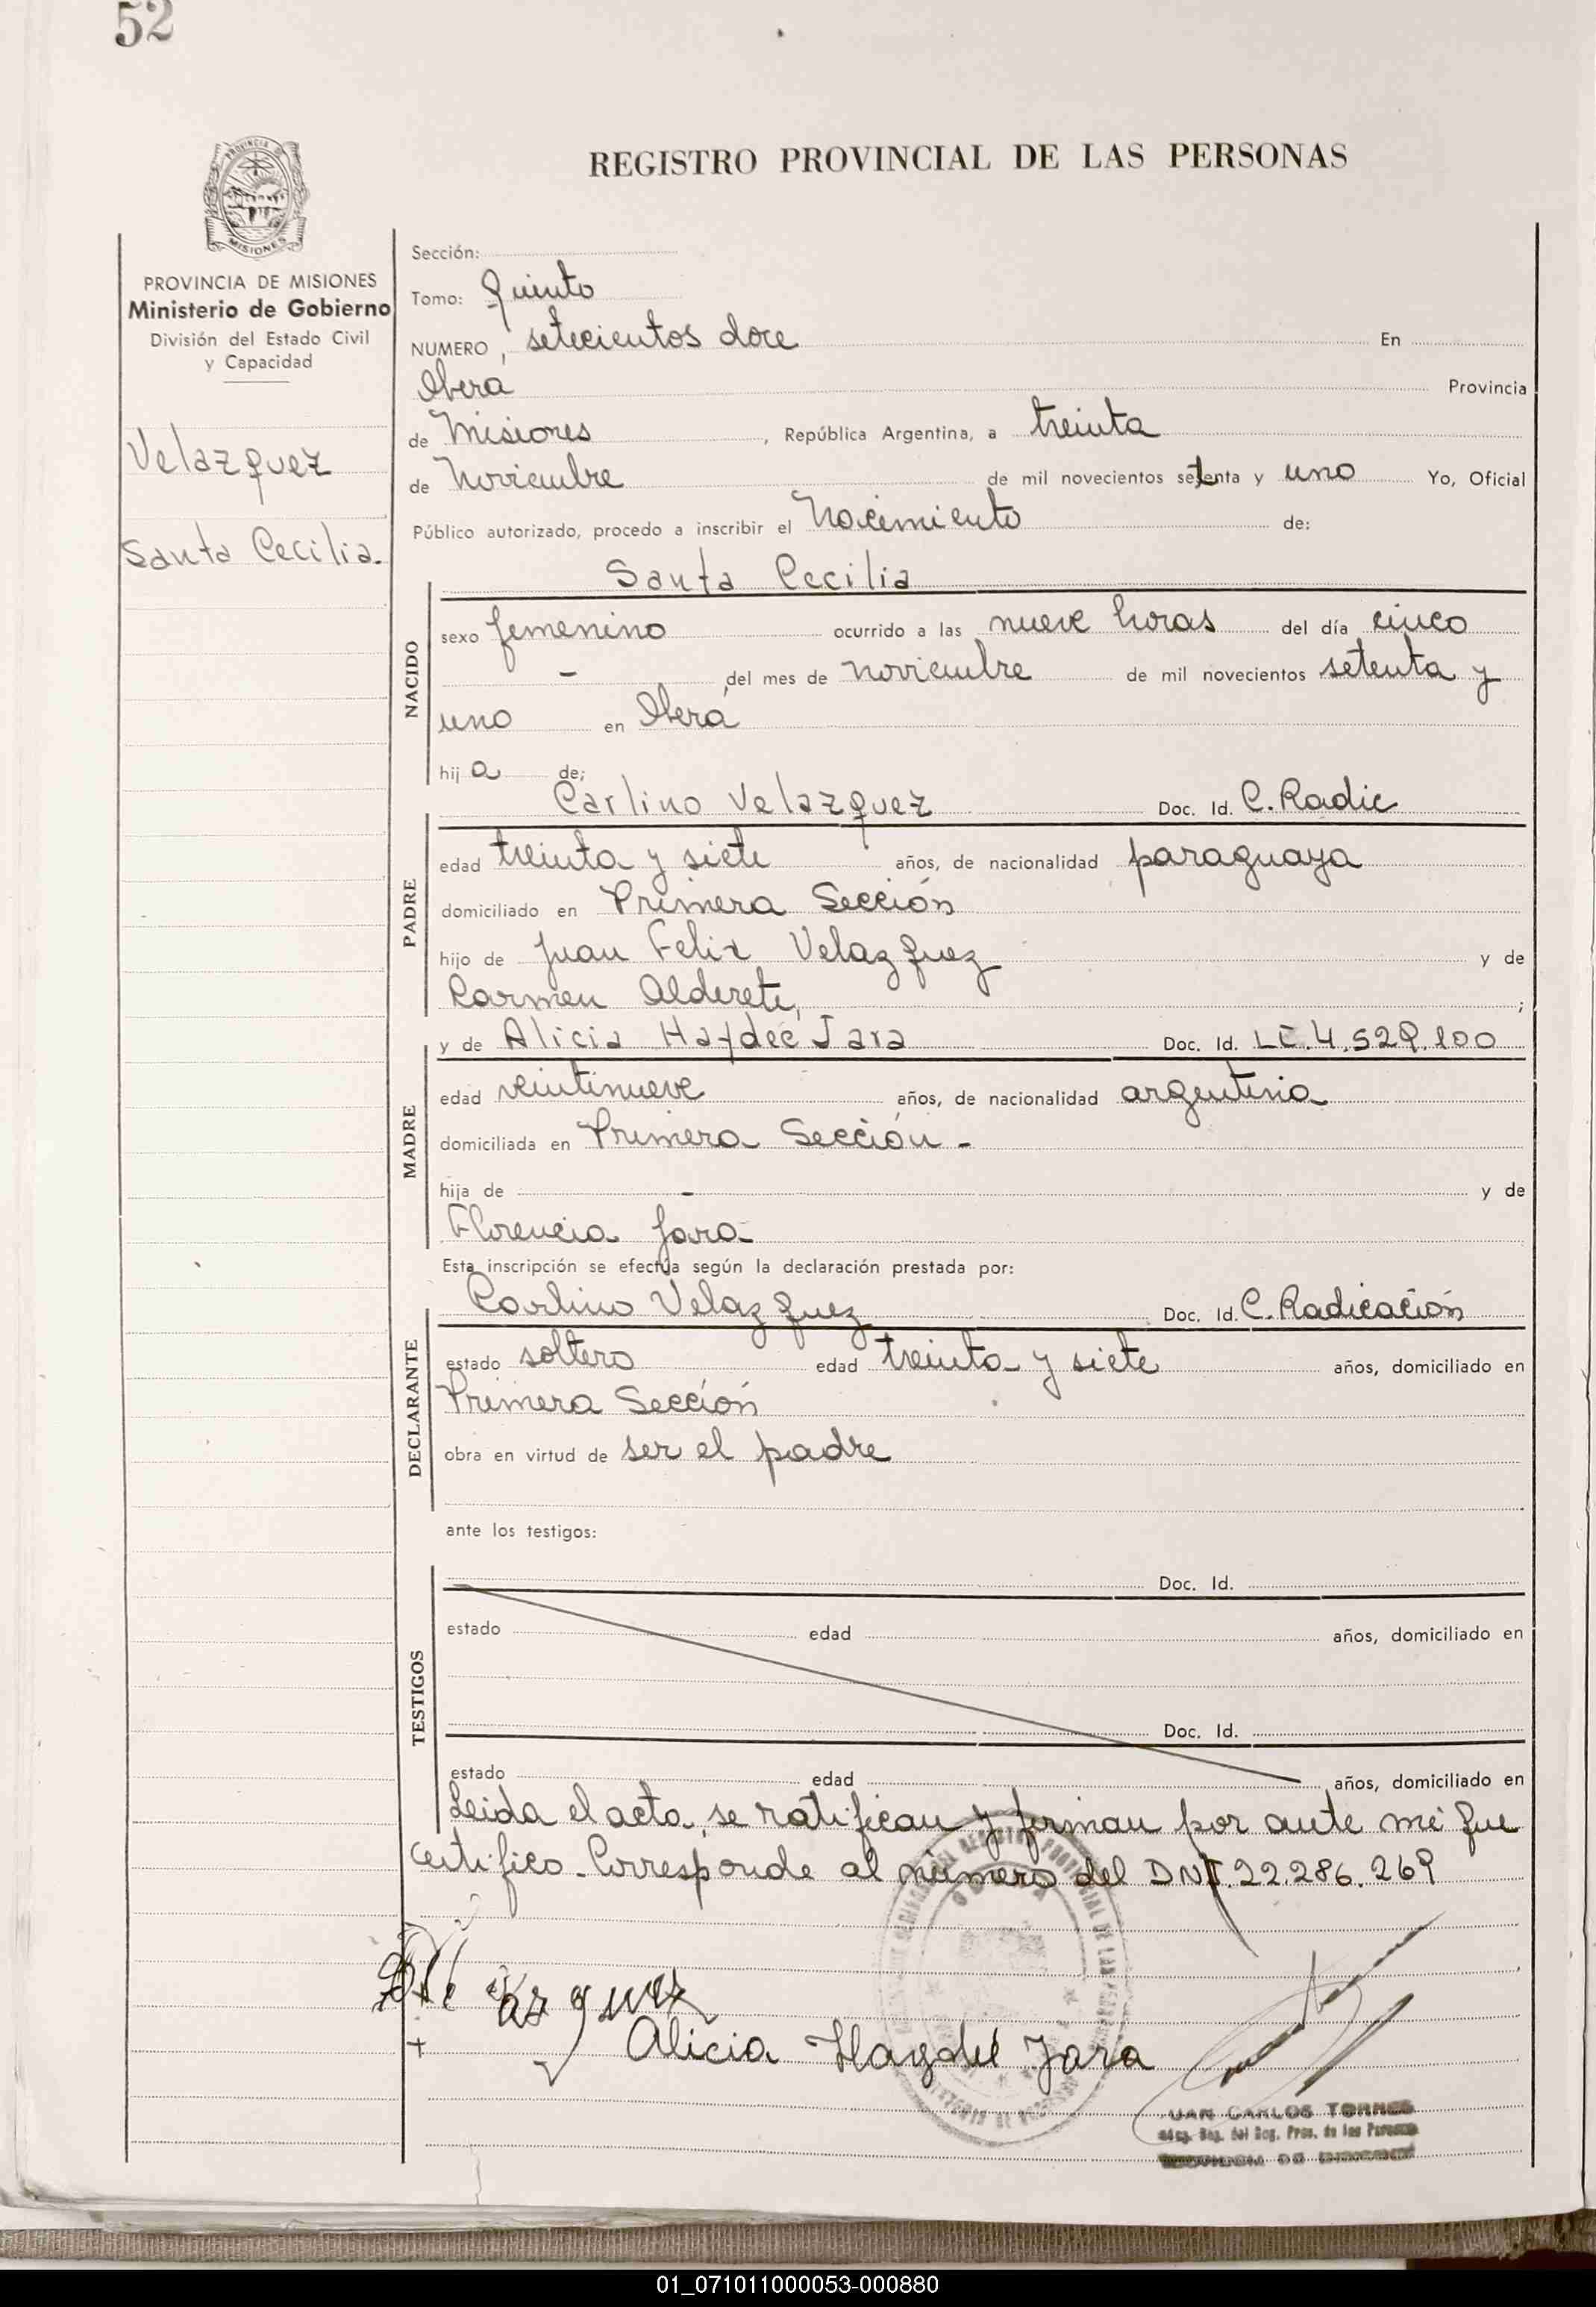 52
REGISTRO PROVINCIAL DE LAS PERSONAS
MISIONES
PROVINCIA DE MISIONES
Ministerio de Gobierno
División del Estado Civil
y Capacidad
Velazquez
Santa Cecilia.
Sección:
Tomo: Quinto
NUMERO, setecientos doce En
Oberá Provincia
de Misiones, República Argentina, a treinta
de Noviembre de mil novecientos setenta y uno Yo, Oficial
Público autorizado, procedo a inscribir el Nacimiento de:
Santa Cecilia
NACIDO
sexo femenino ocurrido a las nueve horas del día cinco
- del mes de noviembre de mil novecientos setenta y
uno en Oberá
hij a de;
PADRE
Carlino Velazquez Doc. Id. C. Radic
edad treinta y siete años, de nacionalidad paraguaya
domiciliado en Primera Sección
hijo de Juan Felix Velazquez y de
Carmen Alderete, ;
MADRE
y de Alicia Haydeé Jara Doc. Id. LC. 4.529.100
edad veintinueve años, de nacionalidad argentina
domiciliada en Primera Sección -
hija de - y de
Florencia Jara-
Esta inscripción se efectúa según la declaración prestada por:
DECLARANTE
Carlino Velazquez Doc. Id. C. Radicación
estado soltero edad treinta y siete años, domiciliado en
Primera Sección
obra en virtud de ser el padre
ante los testigos:
TESTIGOS
Doc. Id.
estado edad años, domiciliado en
Doc. Id.
estado edad años, domiciliado en
Leida el acta, se ratifican y firman por ante mi que
certifico. Corresponde al número del DNI. 22.286.269
Alicia Haydeé Jara
JUAN CARLOS TORRES
01_071011000053-000880